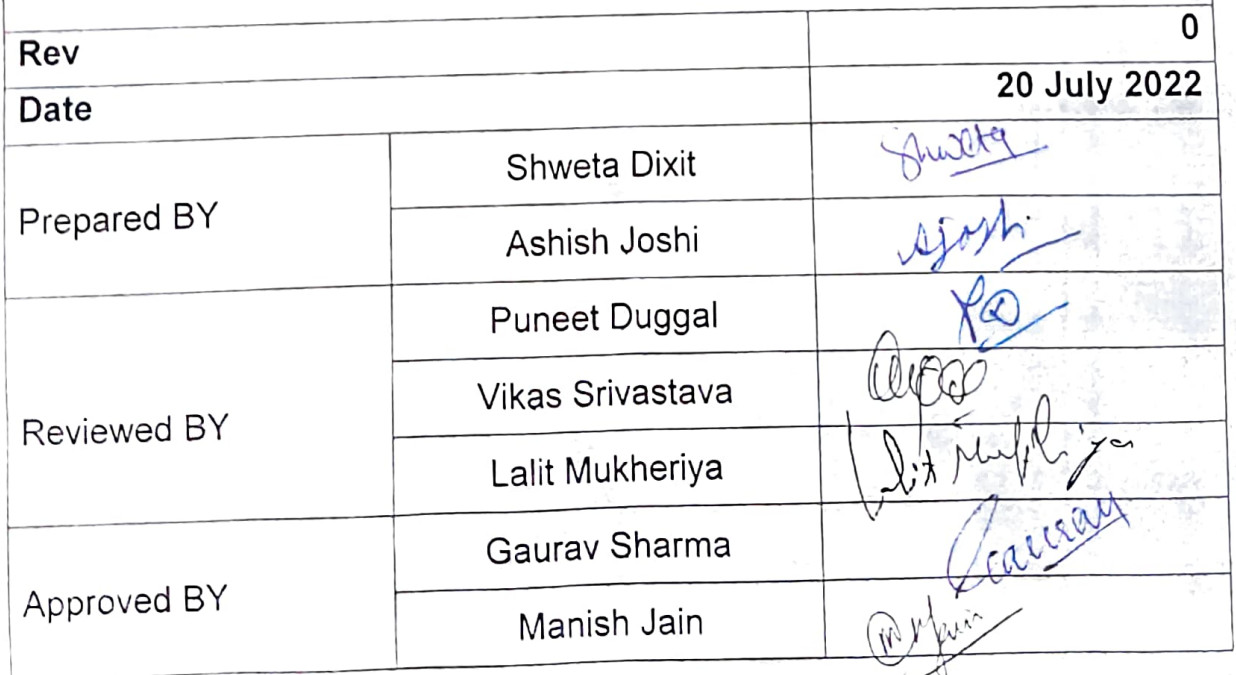 Rev 0
Date 20 July 2022
Prepared BY
Shweta Dixit Shweta
Ashish Joshi AJoshi
Reviewed BY
Puneet Duggal PD
Vikas Srivastava
Lalit Mukheriya Lalit Mukhriya
Approved BY
Gaurav Sharma Gaurav
Manish Jain MJain